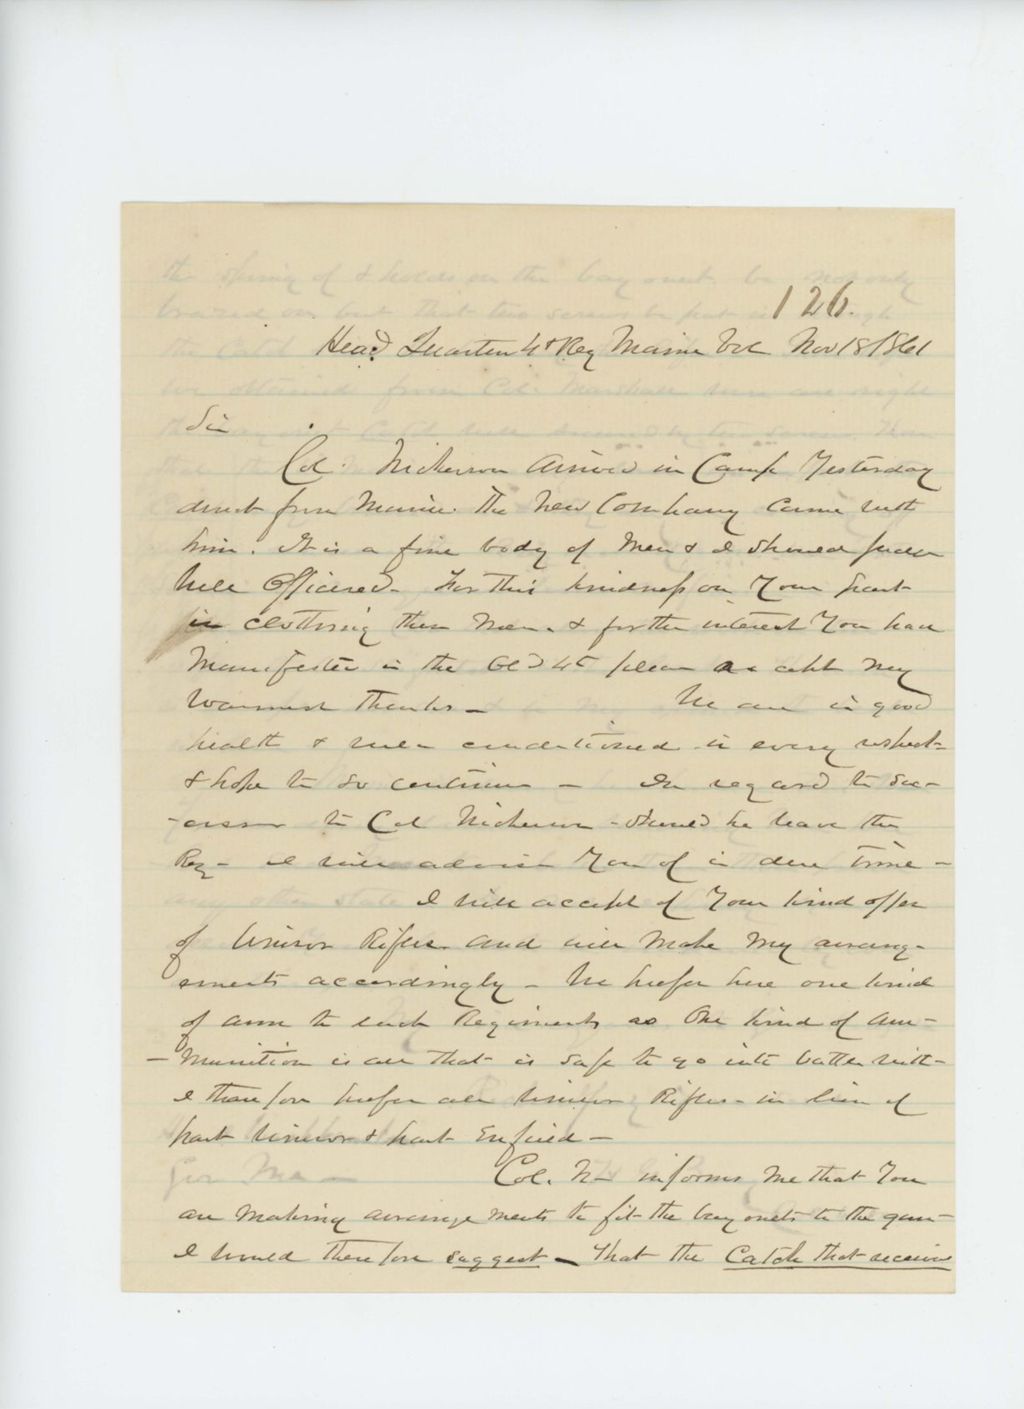 126.
Head Quarters 4t Reg Maine Vol Nov 18 1861
Sir
Col. Nickerson Arrived in Camp Yesterday
direct from Maine. The New Company Came with
him. It is a fine body of Men & I should judge
well Officered - For this kindness on Your part
in clothing these Men & for the interest You have
Manifested in the Old 4t please accept My
Warmest thanks - We are in good
health & well conditioned in every respect -
& hope to so continue - In regard to suc-
-cessor to Col Nickerson - should he leave the
Reg - I will advise You of in due time -
I will accept of Your kind offer
of Winsor Rifles and will Make My arrang-
ements accordingly - We prefer here one kind
of arm to each Regiment as One kind of Am-
-munition is all that is safe to go into battle with -
I therefore prefer all Winsor Rifles - in lieu of
part Winsor & part Enfield -
Col. N - informs Me that You
are Making arrangements to fit the bayonets to the gun -
I would therefore suggest - That the Catch that receives